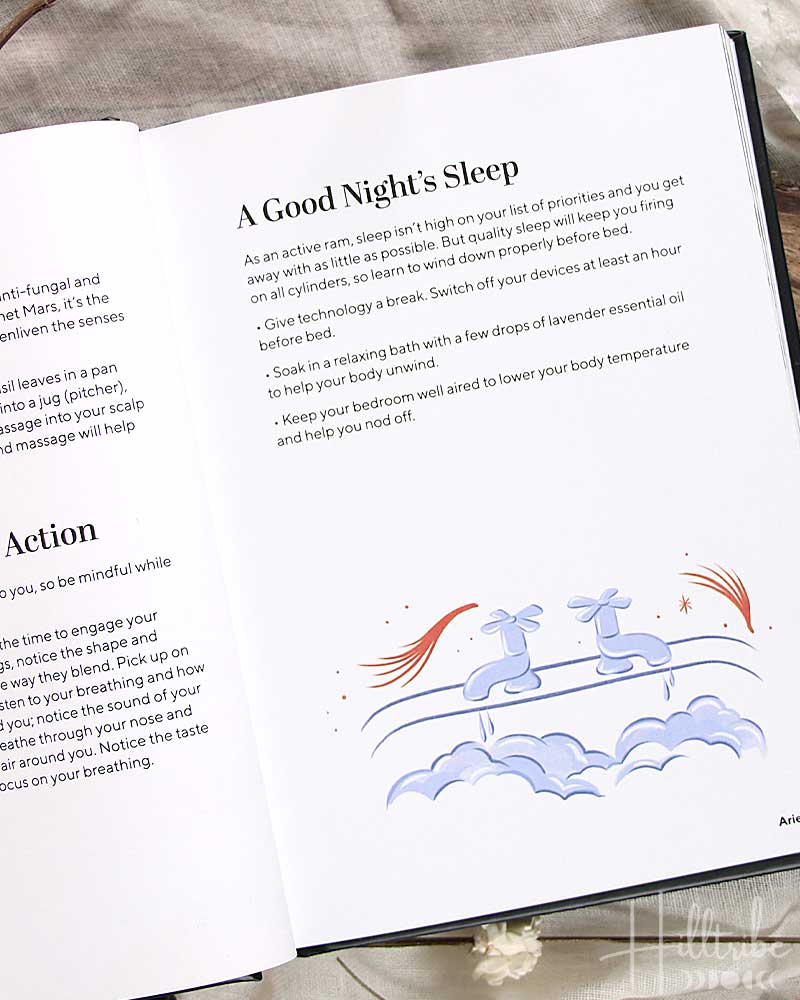 nti-fungal and
net Mars, it's the
enliven the senses
sil leaves in a pan
into a jug (pitcher),
assage into your scalp
nd massage will help
Action
o you, so be mindful while
the time to engage your
gs, notice the shape and
e way they blend. Pick up on
sten to your breathing and how
d you; notice the sound of your
eathe through your nose and
air around you. Notice the taste
ocus on your breathing.
A Good Night's Sleep
As an active ram, sleep isn't high on your list of priorities and you get
away with as little as possible. But quality sleep will keep you firing
on all cylinders, so learn to wind down properly before bed.
• Give technology a break. Switch off your devices at least an hour
before bed.
• Soak in a relaxing bath with a few drops of lavender essential oil
to help your body unwind.
• Keep your bedroom well aired to lower your body temperature
and help you nod off.
Arie
Hilltribe